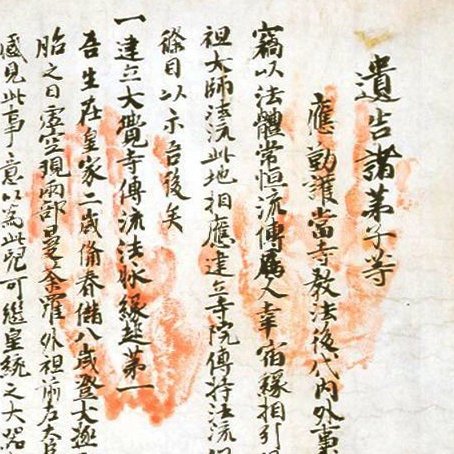 遺告諸弟子等
應勤護當寺教法後代內外事
竊以法體常恒流傳属人幸宿緣相引
祖大師法流此地相應建立寺院傳持法流
條目以示吾後矣
一建立大覺寺傳流法脉緣起第一
吾生在皇家二歲備春儲八歲登大極
胎之日虛空現兩部曼荼羅外祖前左大臣
感見此事意以為此兒可繼皇統之大器